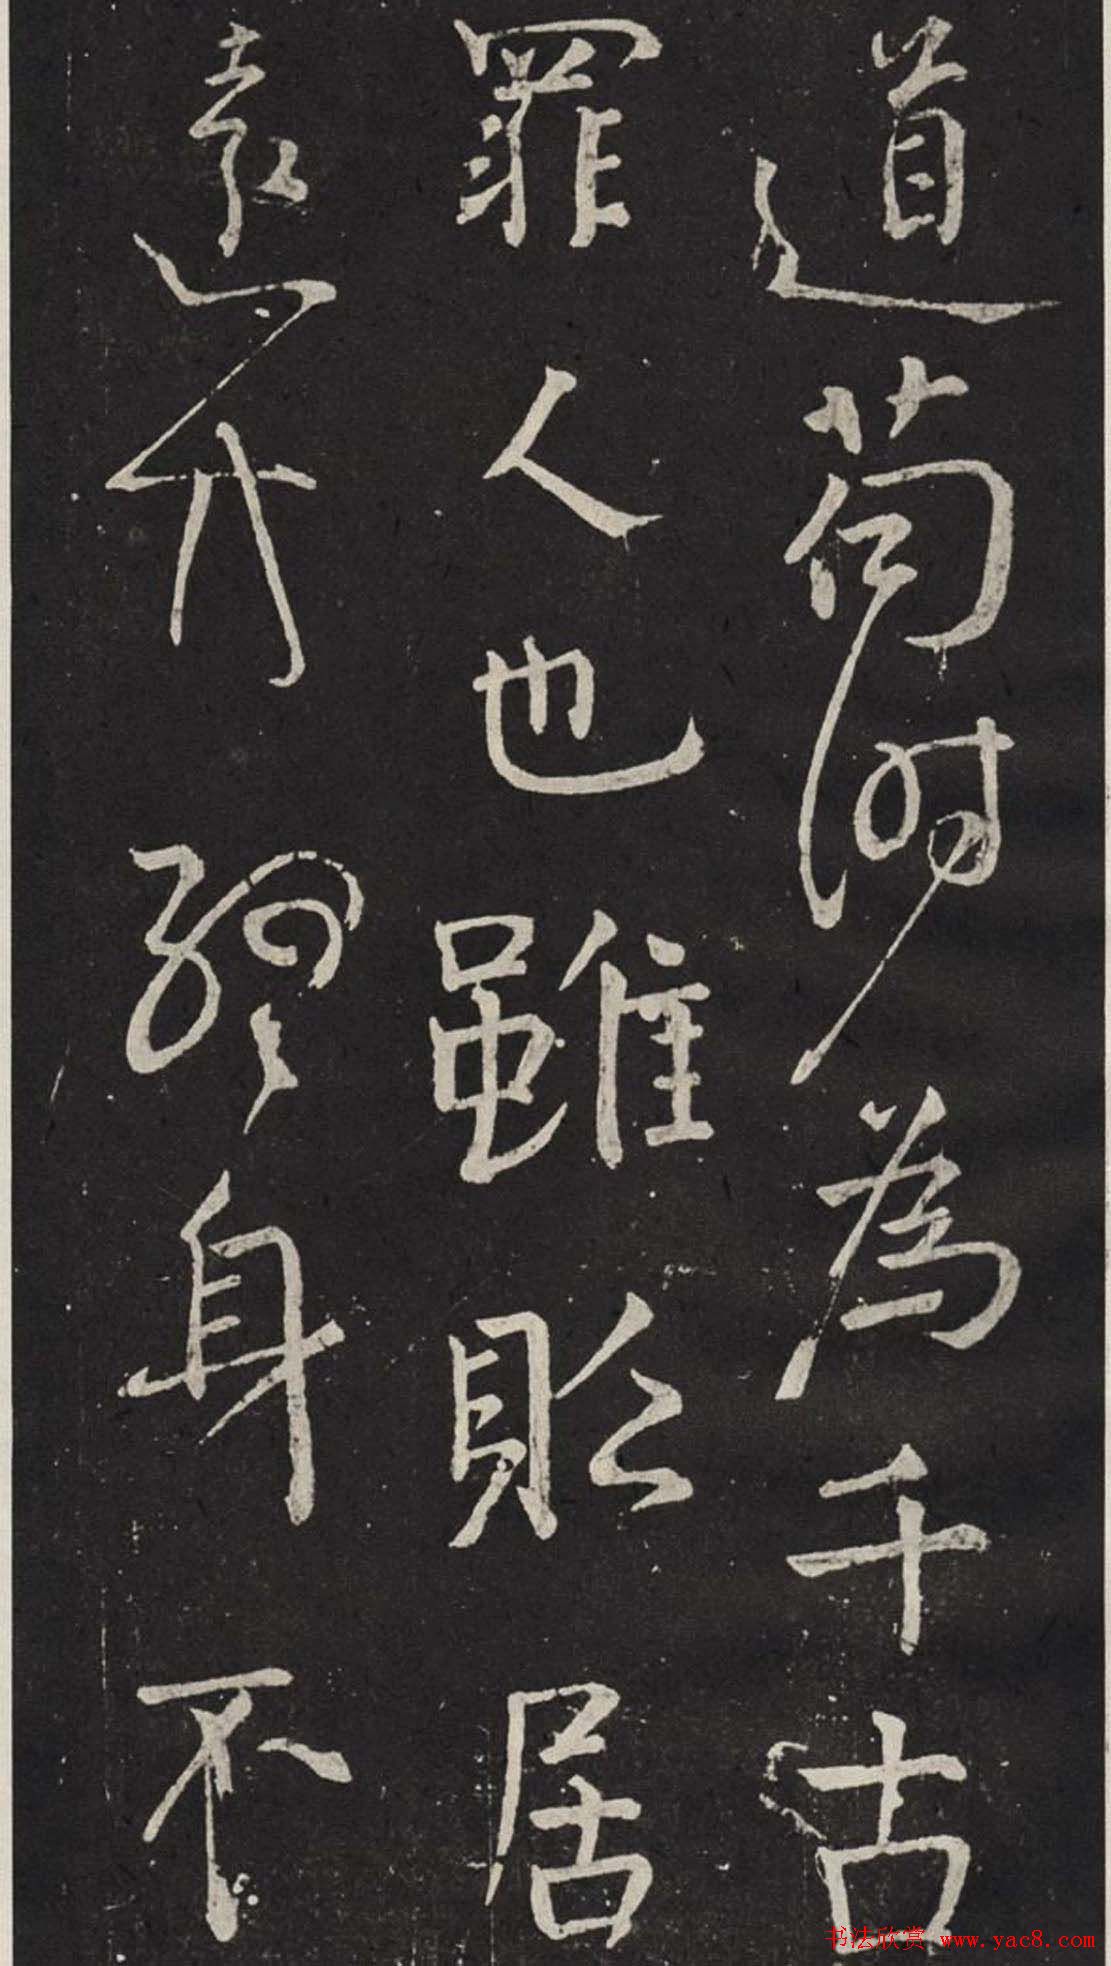 道苟時為千古
罪人也雖貶居
遠方終身不
书法欣赏 www.yac8.com